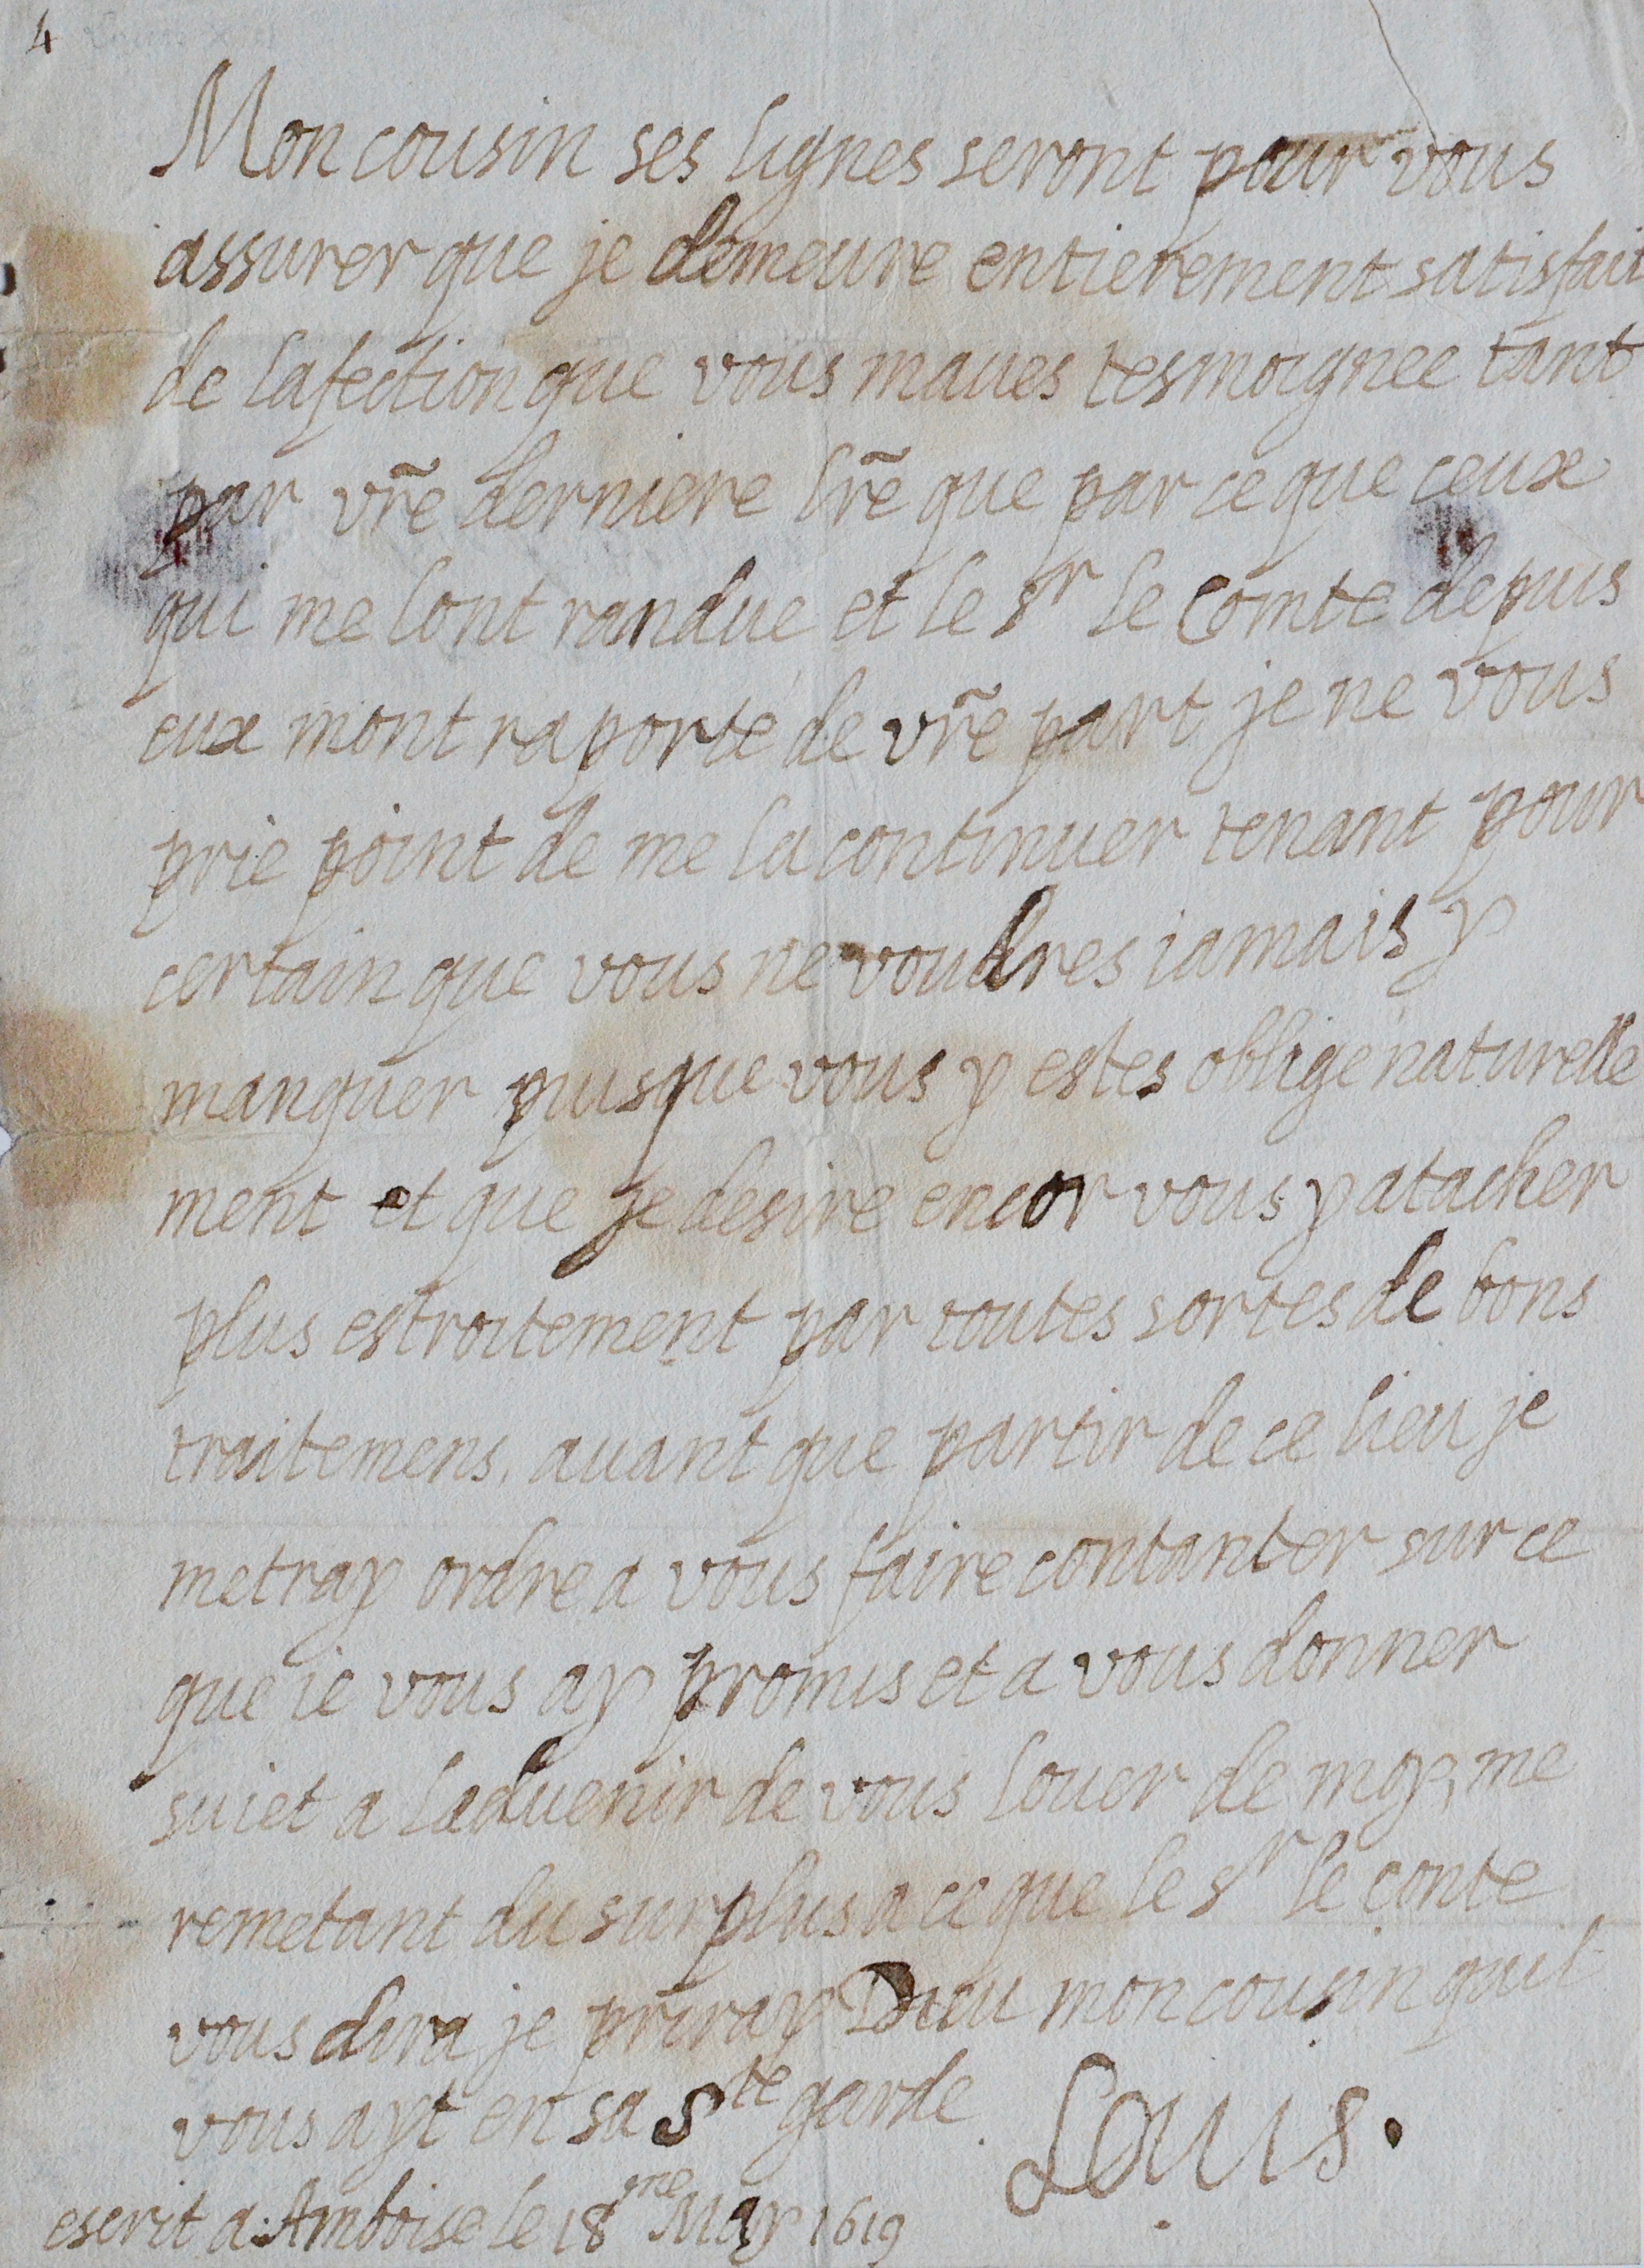 4
Mon cousin ses lignes seront pour vous
assurer que je demeure entierement satisfait
de lafection que vous maues tesmoignee tant
par vr̃e derniere lr̃e que par ce que ceux
qui me lont randue et le sr le Comte depuis
eux mont raporté de vr̃e part je ne vous
prie point de me la continuer tenant pour
certain que vous ne voudres iamais y
manquer puisque vous y estes obligé naturelle
ment et que je desire encor vous y atacher
plus estroitement par toutes sortes de bons
traitemens, auant que partir de ce lieu je
metray ordre a vous faire contanter sur ce
que ie vous ay promis et a vous donner
suiet a laduenir de vous louer de moy, me
remetant du surplus a ce que le sr le conte
vous dira je priray Dieu mon cousin quil
vous ayt en sa Ste garde
Louis.
escrit a Amboise le 18me May 1619